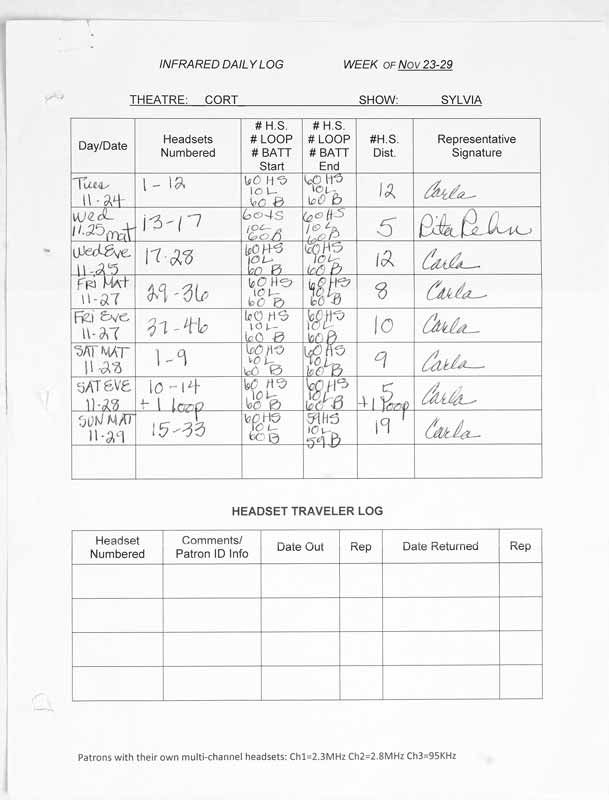 INFRARED DAILY LOG WEEK OF NOV 23-29
THEATRE: CORT SHOW: SYLVIA
Day/Date Headsets Numbered # H.S. # LOOP # BATT Start # H.S. # LOOP # BATT End #H.S. Dist. Representative Signature
Tues 11-24 1-12 60 HS 10L 60 B 60 HS 10L 60 B 12 Carla
Wed 11.25 mat 13-17 60HS 10L 60B 60HS 10L 60B 5 Rita Rehn
Wed Eve 11-25 17-28 60HS 10L 60 B 60HS 10L 60 B 12 Carla
FRI MAT 11-27 29-36 60 HS 10L 60 B 60 HS 10L 60 B 8 Carla
FRI EVE 11-27 37-46 60 HS 10L 60 B 60HS 10L 60B 10 Carla
SAT MAT 11-28 1-9 60 HS 10L 60 B 60 HS 10L 60 B 9 Carla
SAT EVE 11-28 10-14 +1 loop 60 HS 10L 60 B 60HS 10L 60 B 5 +1 loop Carla
SUN MAT 11-29 15-33 60HS 10L 60B 59HS 10L 59B 19 Carla
HEADSET TRAVELER LOG
Headset Numbered Comments/ Patron ID Info Date Out Rep Date Returned Rep
Patrons with their own multi-channel headsets: Ch1=2.3MHz Ch2=2.8MHz Ch3=95KHz